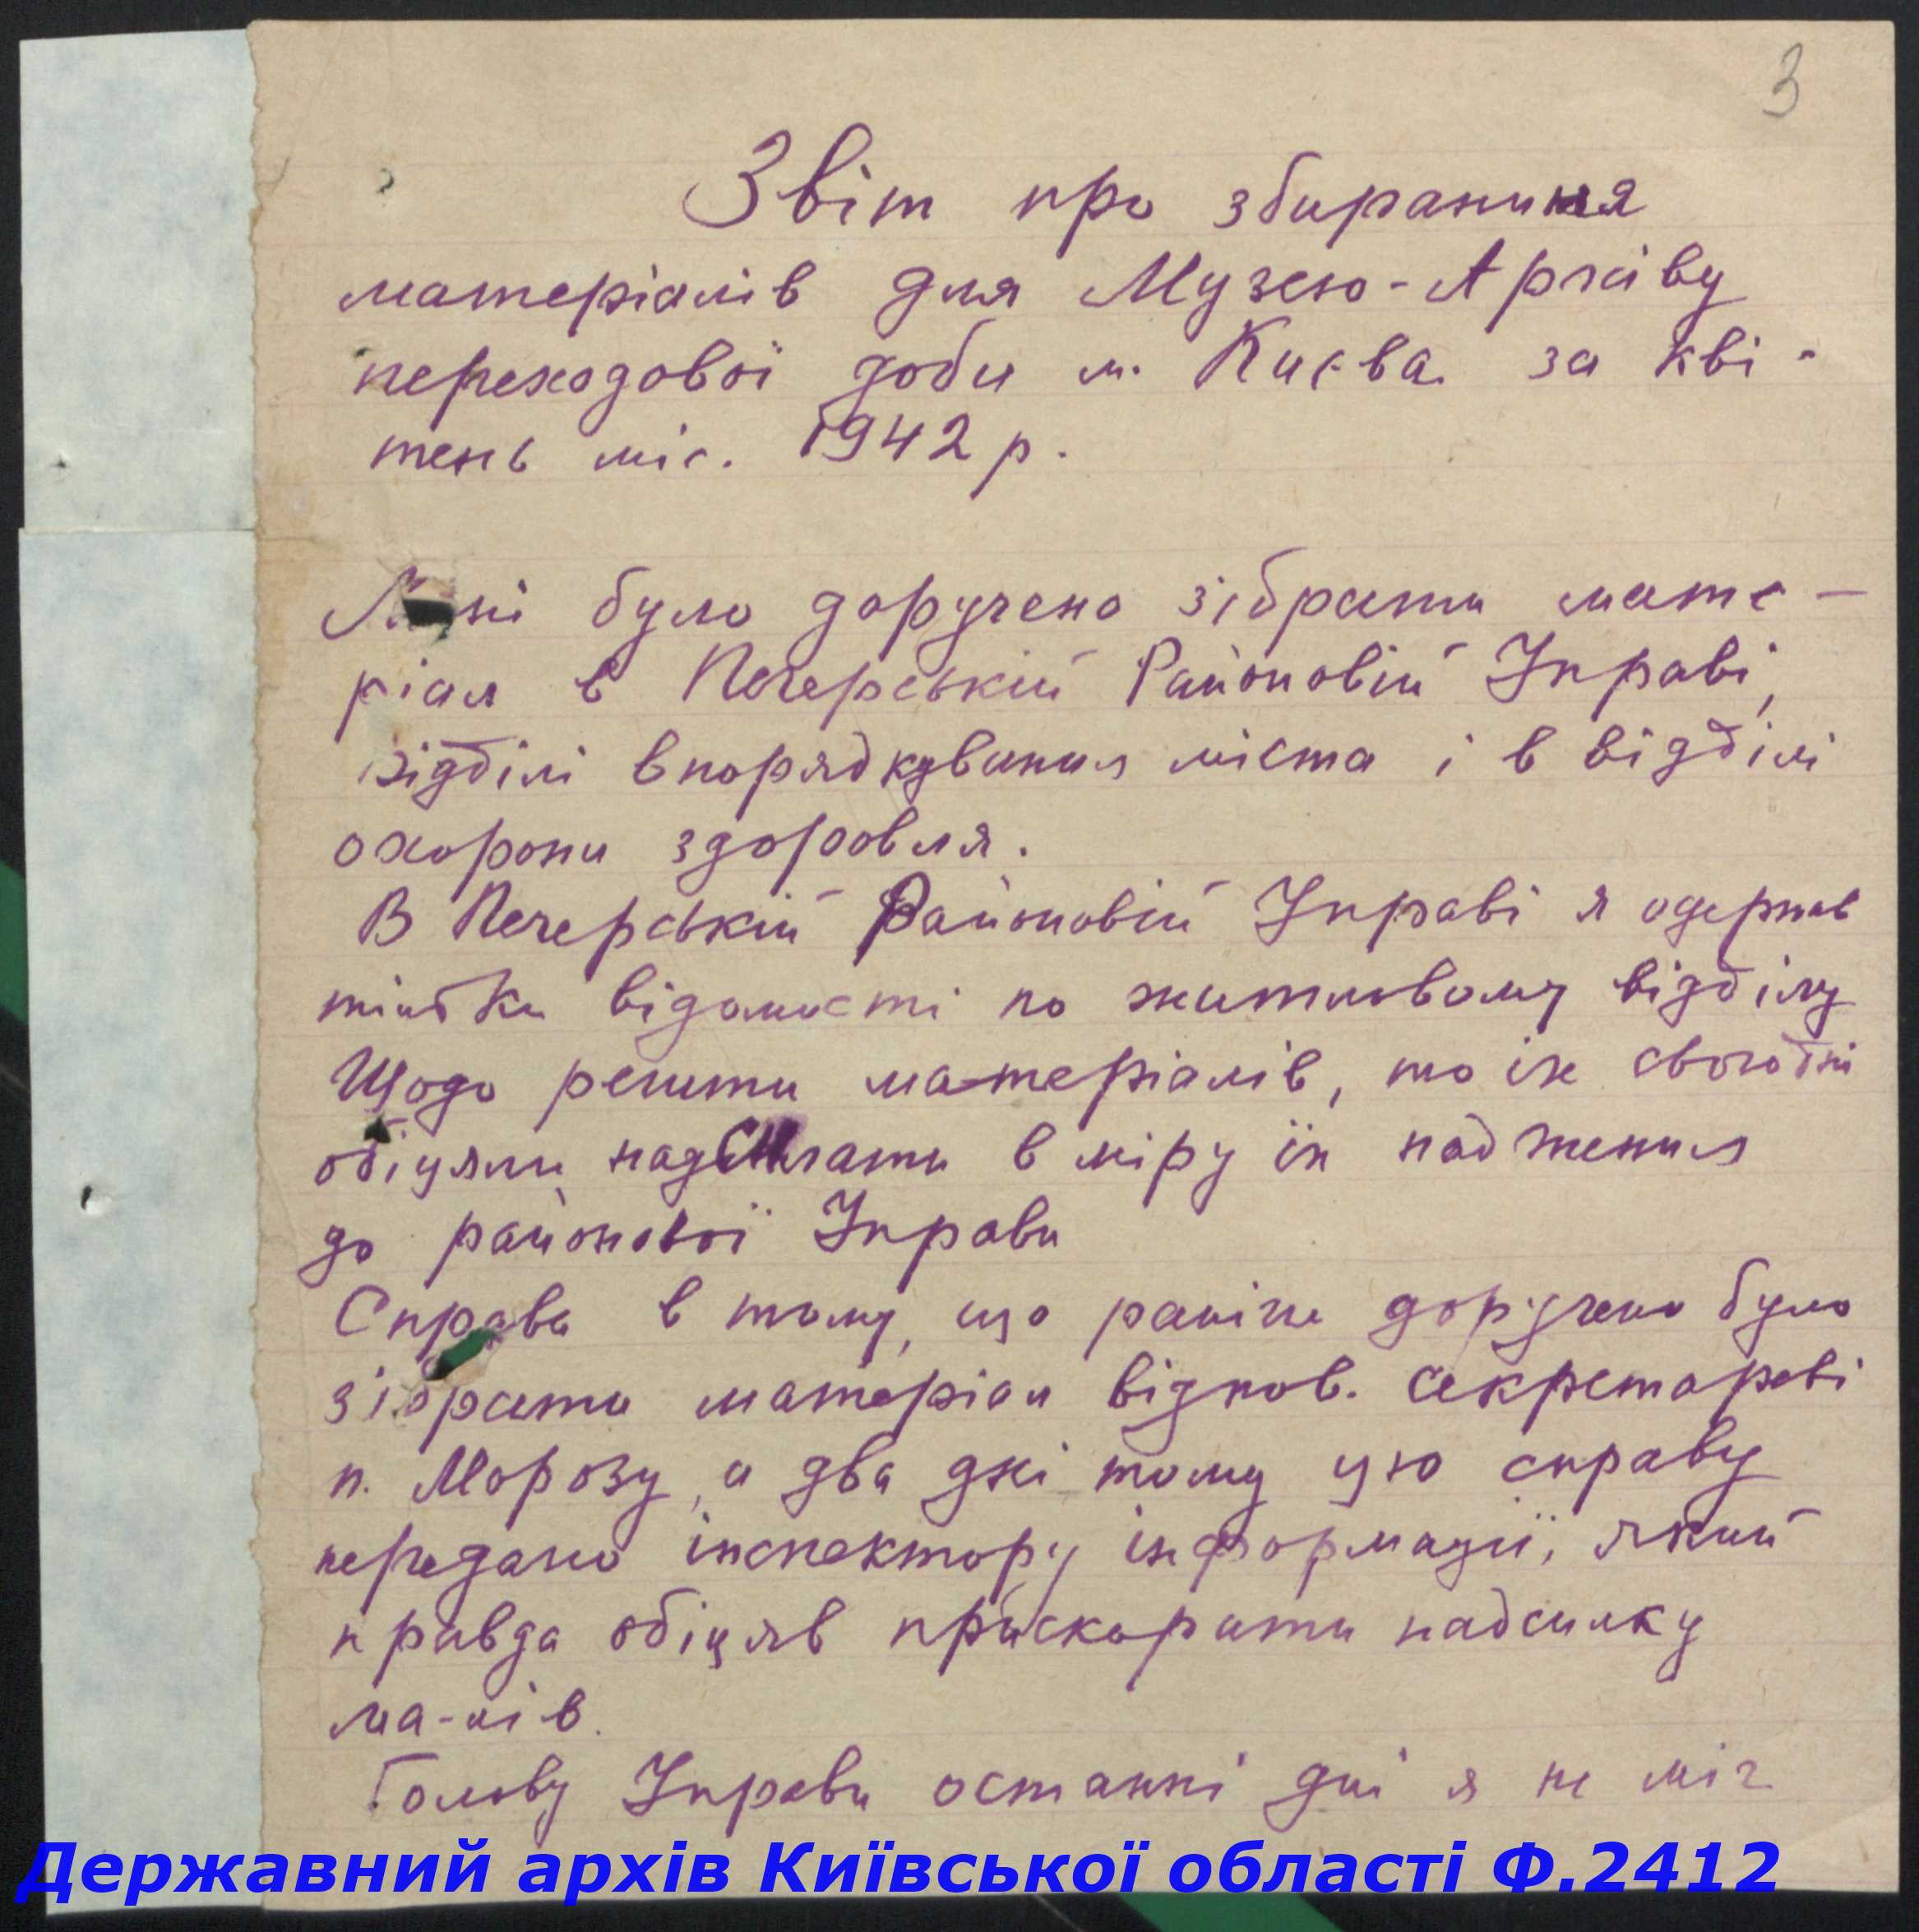 3
Звіт про збирання
матеріялів для Музею-Архіву
переходової доби м. Києва за кві-
тень міс. 1942 р.
Мені було доручено зібрати мате-
ріял в Печерській Районовій Управі,
відділі впорядкування міста і в відділі
охорони здоровля.
В Печерській Районовій Управі я одержав
тільки відомості по житловому відділу
Щодо решти матеріялів, то їх сьогодні
обіцяли надсилати в міру їх
до районової Управи
Справа в тому, що раніше доручено було
зібрати матеріал відпов. секретареві
п. Морозу, а два дні тому цю справу
передано інспектору інформації, який
правда обіцяв прискорити надсилку
ма-лів.
Голову Управи останні дні я не міг
Державний архів Київської області Ф.2412